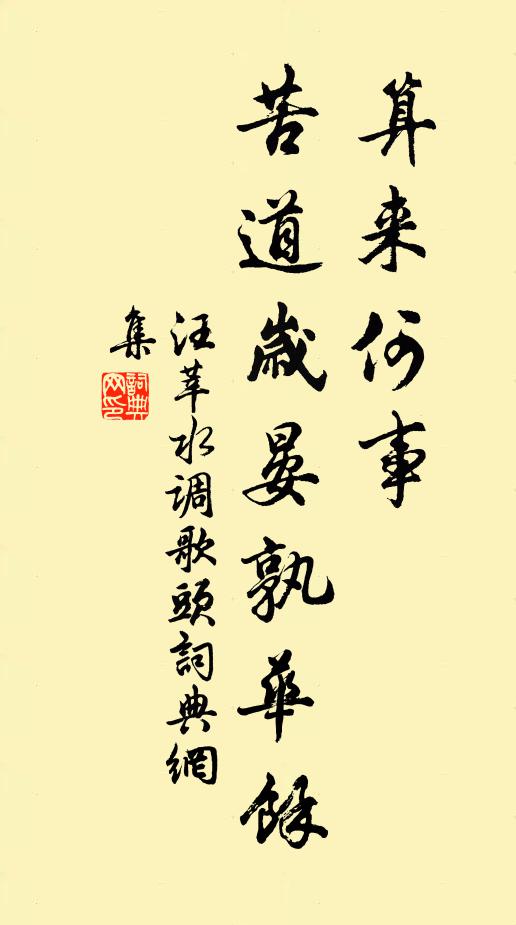 算来何事
苦道歲晏孰華餘
汪莘水调歌頭詞典網
集
詞典网印